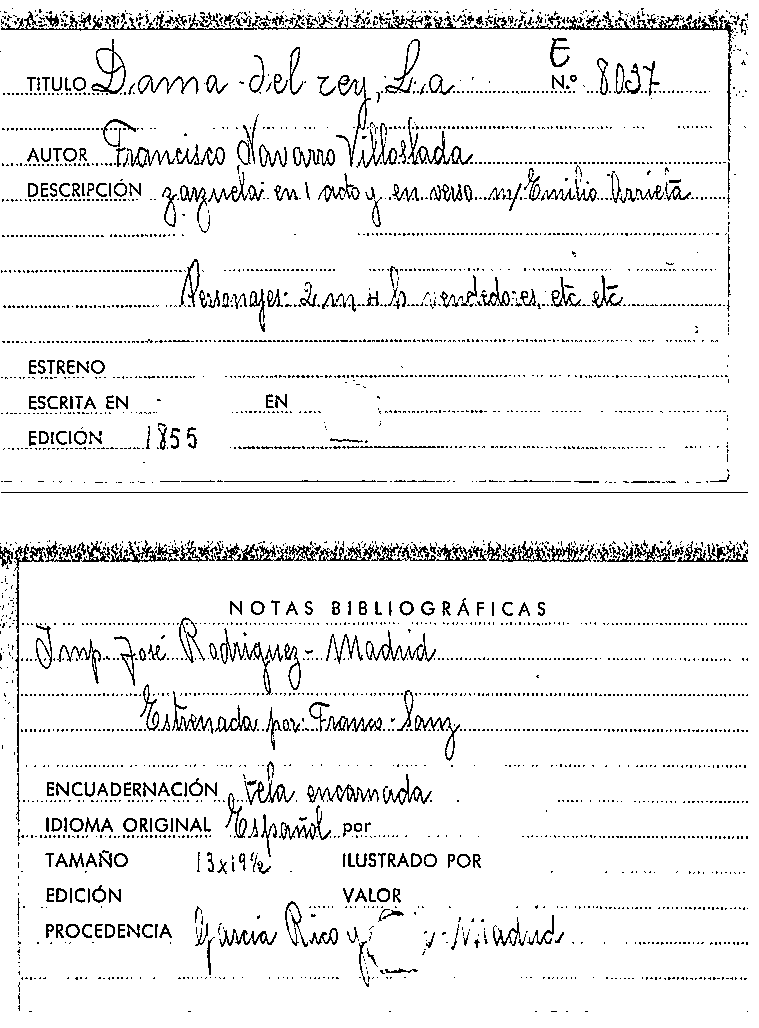 E
TITULO Dama del rey, La N.º 8037
AUTOR Francisco Navarro Villoslada
DESCRIPCIÓN zarzuela en 1 acto y en verso m/ Emilio Arrieta
Personajes: 2 m 4 h vendedores, etc etc
ESTRENO
ESCRITA EN - EN
EDICIÓN 1855
NOTAS BIBLIOGRÁFICAS
Imp. José Rodriguez - Madrid
Estrenada por: Franco - Sanz
ENCUADERNACIÓN tela encarnada
IDIOMA ORIGINAL Español por
TAMAÑO 13x19½ ILUSTRADO POR
EDICIÓN VALOR
PROCEDENCIA García Rico y - Madrid